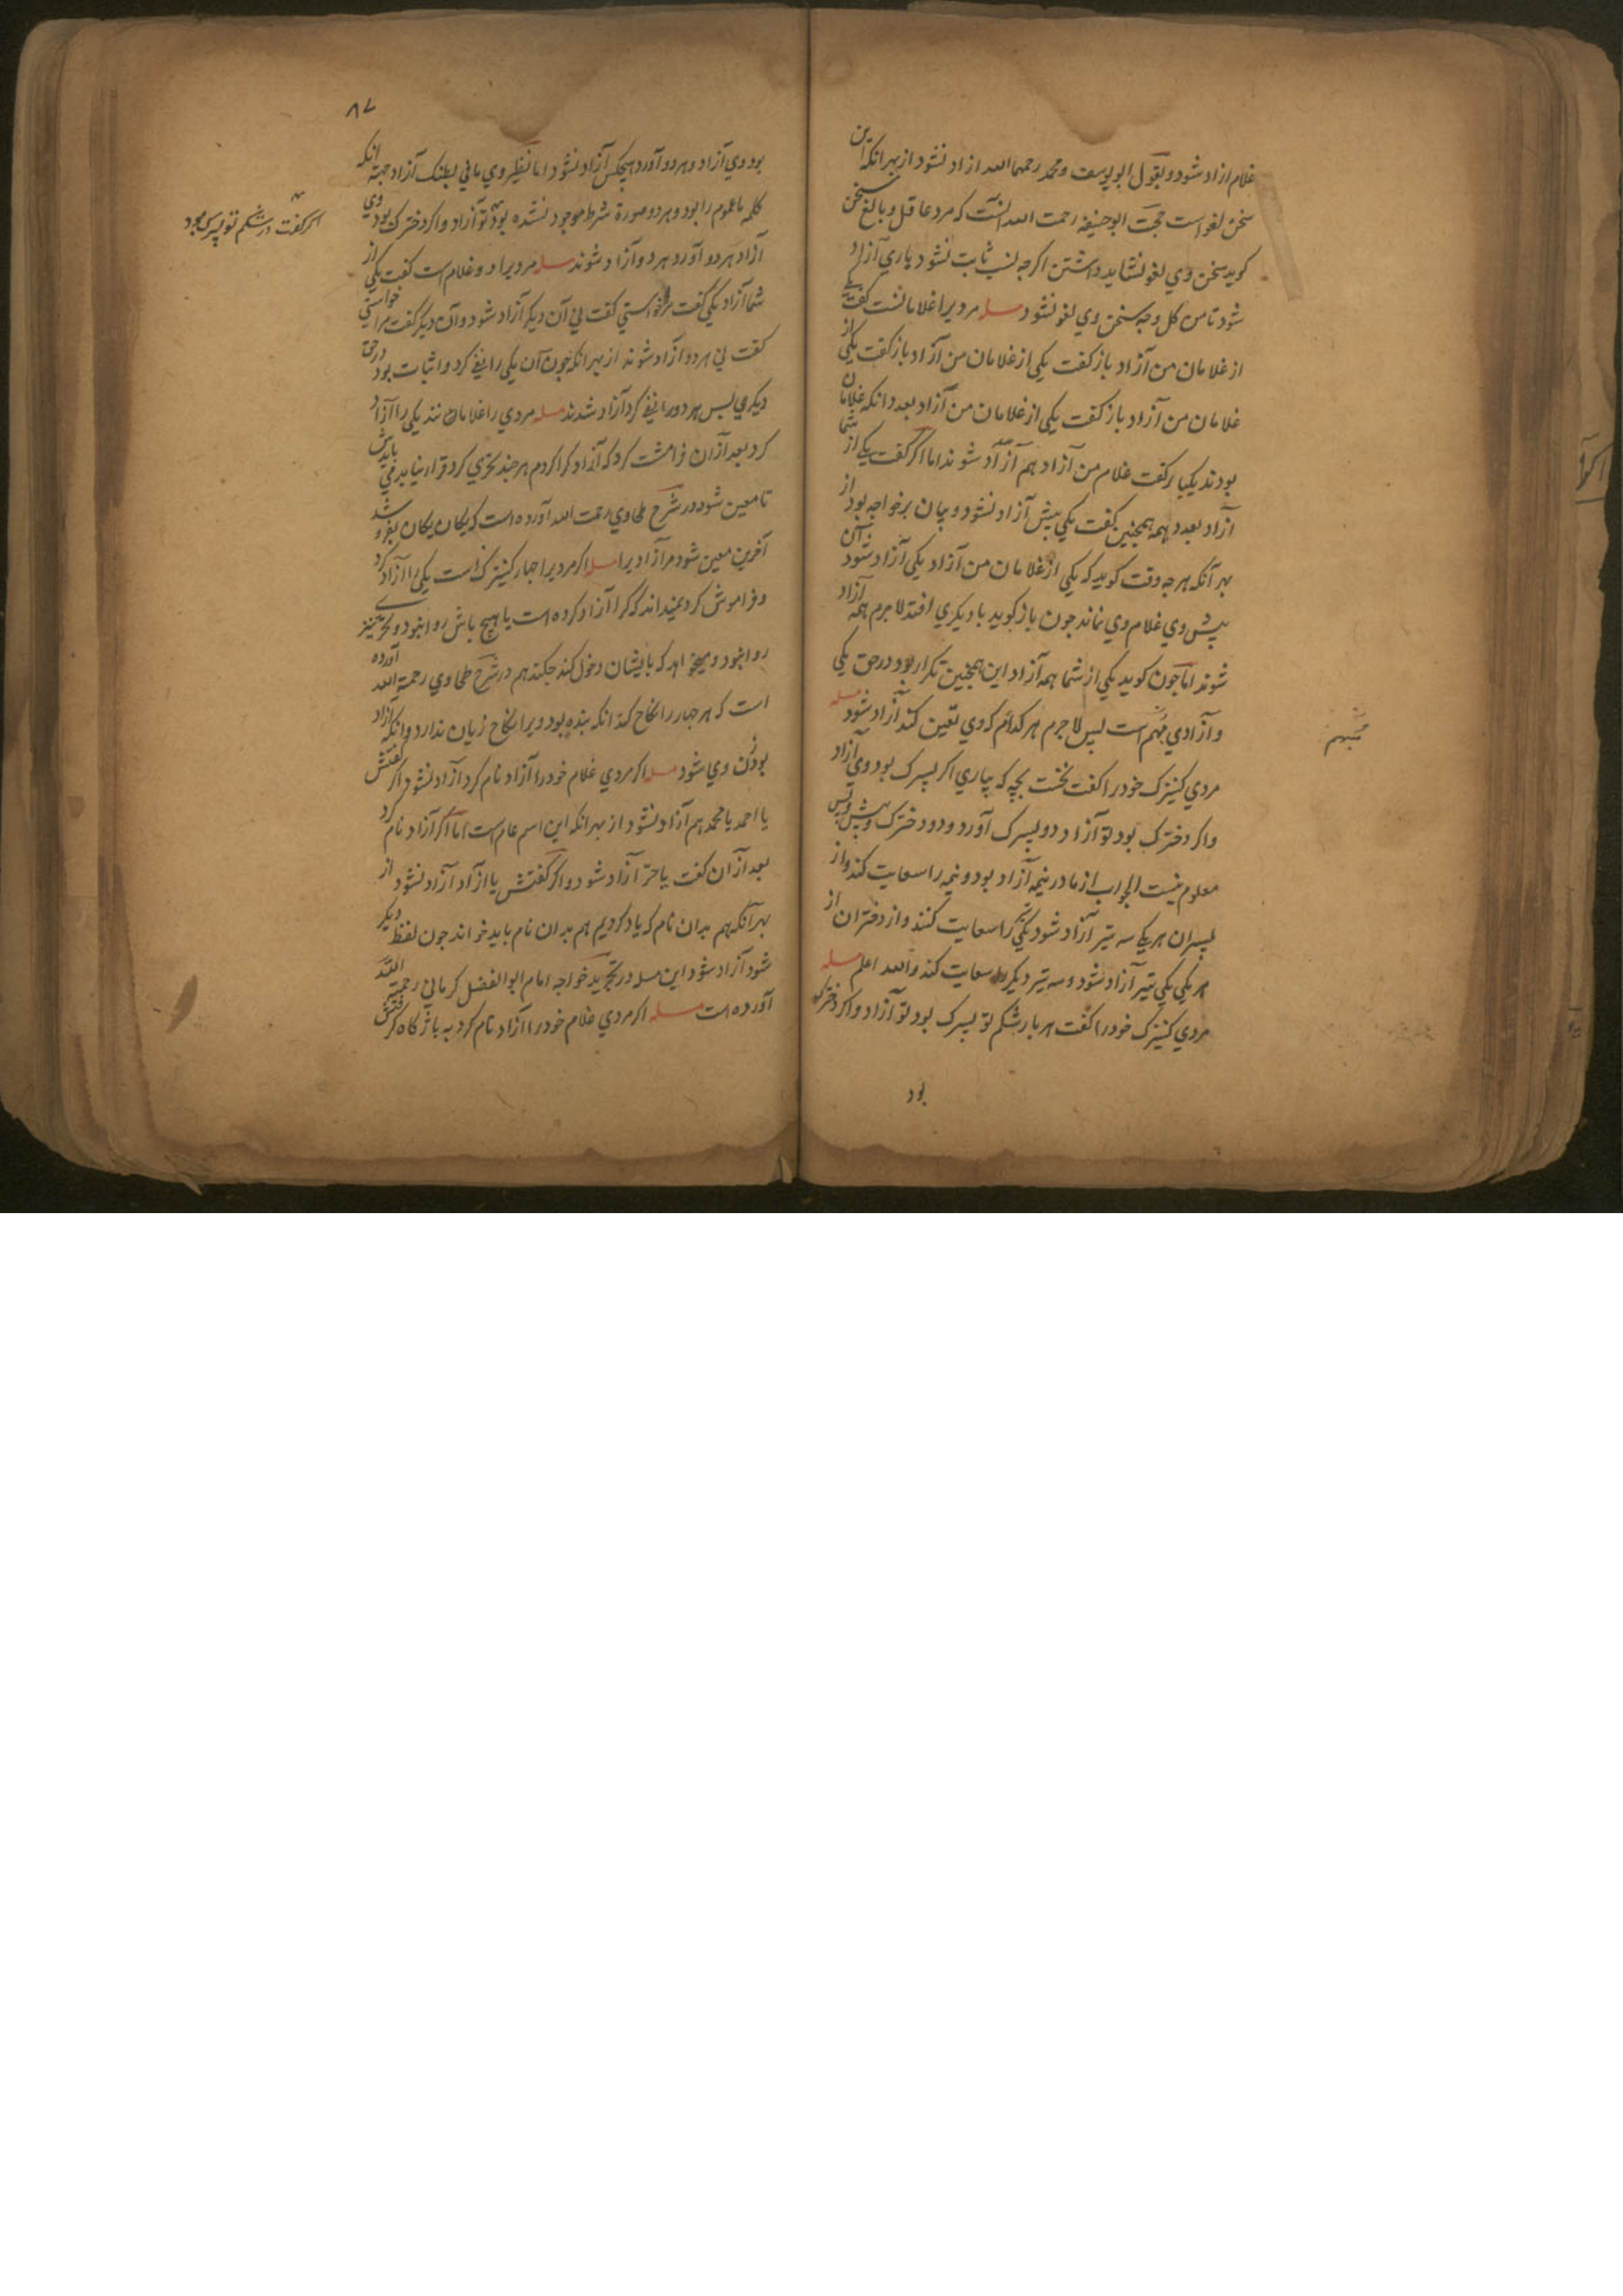 غلام ازاد شود و بقول ابو یوسف و محمد رحمهما الله ازاد نشود از بهر انکه این
سخن لغو است حجت ابو حنیفه رحمت الله انست که مرد عاقل و بالغ سخن
کوید سخن وي لغو نشاید داشتن اکرجه نسب ثابت نشود باري آزاد
شود تا من کل وجه سخن وي لغو نشود مسله مردیرا غلامانست کفت یکي
از غلامان من آزاد باز کفت یکي از غلامان من آزاد باز کفت یکي از
غلامان من آزاد باز کفت یکي از غلامان من آزاد بعدد انکه غلامان
بودند یکبار کفت غلام من آزاد هم آزاد شوند اما اکر کفت یکي از شما
آزاد بعدد همه همجنین کفت یکي بیش آزاد نشود و بیان بر خواجه بود از
بهر آنکه هر جه وقت کوید که یکي از غلامان من آزاد یکي آزاد شود آن
بیش وي غلام وي نماند جون باز کوید با دیکري افتد لاجرم همه آزاد
شوند اما جون کوید یکي از شما همه آزاد این همجنین تکرار بود در حق یکي
و آزادي مبهم است لیس لاجرم هر کدام که وي تعین کند آزاد شود مسله
مردي کنیزک خود را کفت نخست بچه که بیاري اکر پسرک بود وي آزاد
و اکر دخترک بود تو آزاد دو پسرک آورد و دو دخترک و پیش و پس
معلوم نیست الجواب از مادر نیمه آزاد بود و نیمه را سعایت کند و از
پسران هر یکي سه تیر آزاد شود یکي را سعایت کنند و از دختران از
هر یکي یکي تیر آزاد شود و سه تیر دیکر سعایت کند والله اعلم مسله
مردي کنیزک خود را کفت هر بار شکم تو پسرک بود تو آزاد و اکر دخترک
بود
مبهم
۸۷
بود وي آزاد و هر دو آورد هیچکس آزاد نشود اما نظیر وي ما في بطنک آزاد جهت انکه
کلمه ما عموم را بود و هر دو صورة شرط موجود نشده بود تو آزاد و اکر دخترک بود وي
آزاد هر دو آورد هر دو آزاد شوند مسله مردیرا دو غلام است کفت یکي از
شما آزاد یکي کفت مرا خواستي کفت ني آن دیکر آزاد شود و آن دیکر کفت مرا خواستي
کفت ني هر دو آزاد شوند از بهر انکه جون آن یکي را نفي کرد اثبات بود در حق
دیکري پس هر دو را نفي کرد آزاد شدند مسله مردي را غلامان اند یکي را آزاد
کرد بعد از آن فرامشت کرد که آزاد کرا کردم هر جند تحري کرد قرار نیابد مي بایدش
تا معین شود در شرح طحاوي رحمت الله آورده است که یکان یکان بفروشد
آخرین معین شود مر آزادیرا مسله اکر مردیرا جهار کنیزک است یکي را آزاد کرد
و فراموش کرد نمیداند که کرا آزاد کرده است با هیچ باش روا نبود و تحري نیز
روا نبود و میخواهد که با ایشان دخول کند جکند هم در شرح طحاوي رحمة الله آورده
است که هر جهار را نکاح کند انکه بنده بود ویرا نکاح زیان ندارد و انکه آزاد
بود زن وي شود مسله اکر مردي غلام خود را آزاد نام کرد آزاد نشود و اکر کفتش
یا احمد یا محمد هم آزاد نشود از بهر انکه این اسم عام است اما اکر آزاد نام کرد
بعد از آن کفت یا حر آزاد شود و اکر کفتش یا آزاد آزاد نشود از
بهر آنکه هم بدان نام که یاد کردیم هم بدان نام باید خواند جون لفظ دیکر
شود آزاد شود این مسله در تجرید خواجه امام ابو الفضل کرماني رحمه الله
آورده است مسله اکر مردي غلام خود را آزاد نام کرد به باژ کاه کرفتش
اکر کفت در شکم تو پسرک بود